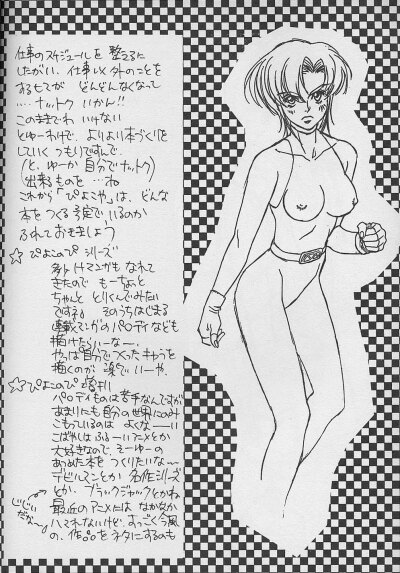 仕事のスケジュールを整えるに
したがい、仕事以外のことを
するヒマが どんどんなくなって
‥‥ナットク いかん!!
このままでわ いけない
とゆーわけで、よりよい本づくりを
していく つもりですんで、
(と、ゆーか 自分でナットク)
(出来るものを ‥‥ね
これから「ぴよこや」は、どんな
本をつくる予定でいるのか
ふれておきましょう
☆ ぴよこのぴ シリーズ
マンガも なれて
きたので もーちょっと
ちゃんと とりくんでみたい
ですネ。 そのうちはじまる
マンガのパロディなども
描けたらいーなー。
やっぱ自分でつくったキャラを
描くのが 楽で いーや。
☆ ぴよこのぴ 増刊
パロディものは苦手なんですが
あまりにも自分の世界にのみ
こもっているのは よくなーい
こばやしはふるーいアニメとか
大好きなので、そーゆーの
あつめた本を つくりたいなー
デビルマンとか 名作シリーズ
とか、ブラックジャックとかね
最近のアニメには なかなか
ハマれないけど、すっごく今風
の、作品をネタにするのも
じじい
だな〜